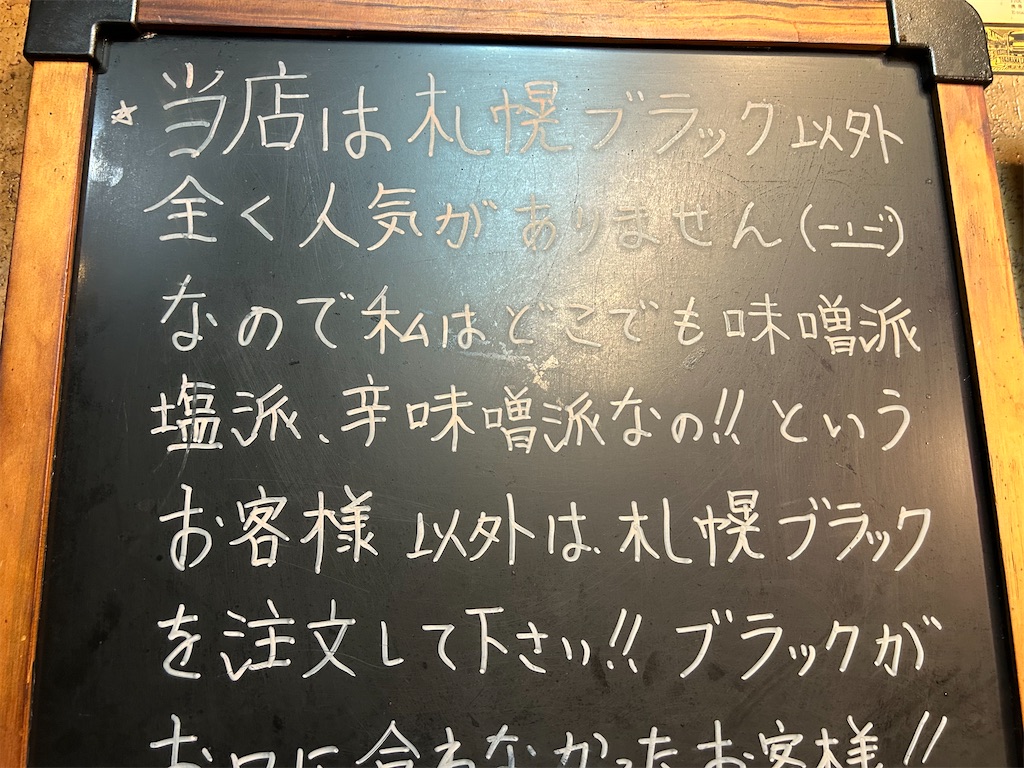 ☆当店は札幌ブラック以外
全く人気がありません(一_一)
なので私はどこでも味噌派
塩派、辛味噌派なの!!という
お客様以外は札幌ブラック
を注文して下さい!!ブラックが
お口に合わなかったお客様!!